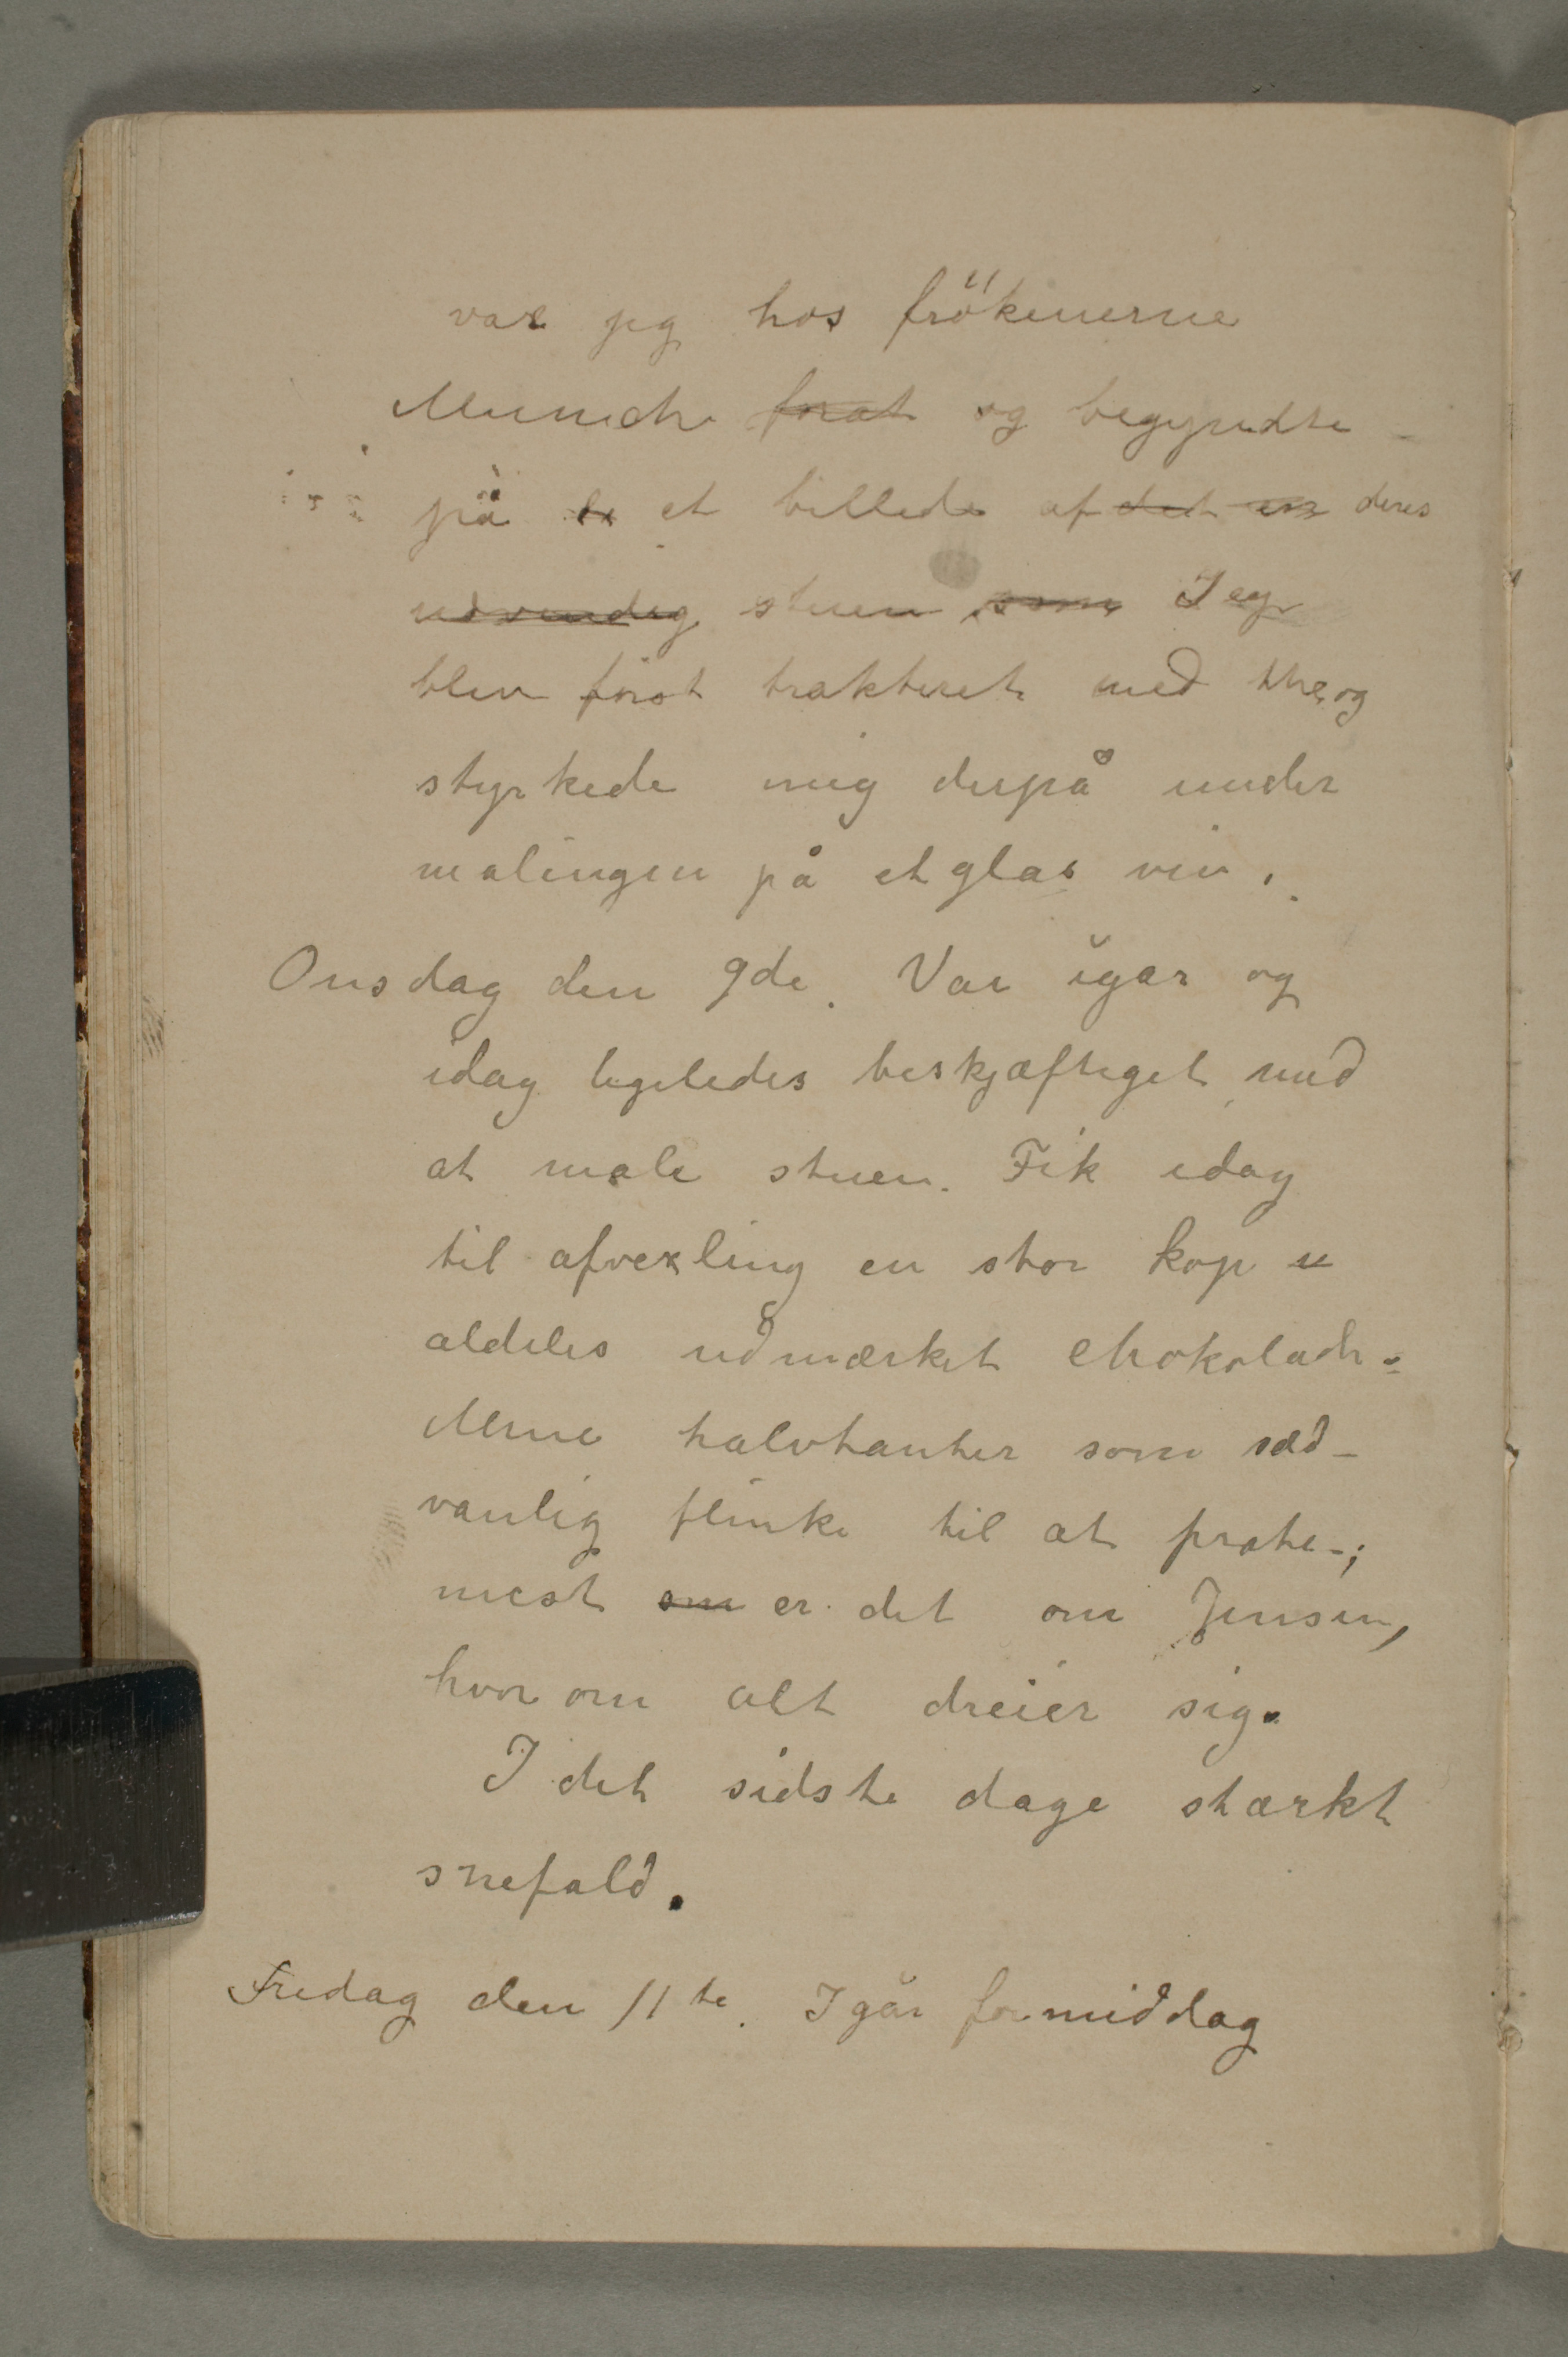 var jeg hos frökenerne
Munch forat og begyndte
på de et billede af det en deres
udvendig stuen, som Jeg
blev först trakteret med the, og
styrkede mig derpå under
malingen på et glas vin.
Onsdag den 9de. Var igår og
idag ligeledes beskjæftiget med
at male stuen. Fik idag
til afvexling en stor kop
aldeles udmærket chokolade.
Mine halvtanter som sæd-
vanlig flinke til at prate –;
mest om er det om Jensen,
hvorom alt dreier sig.
I det sidste dage stærkt
snefald.
Fredag den 11te. Igår formiddag